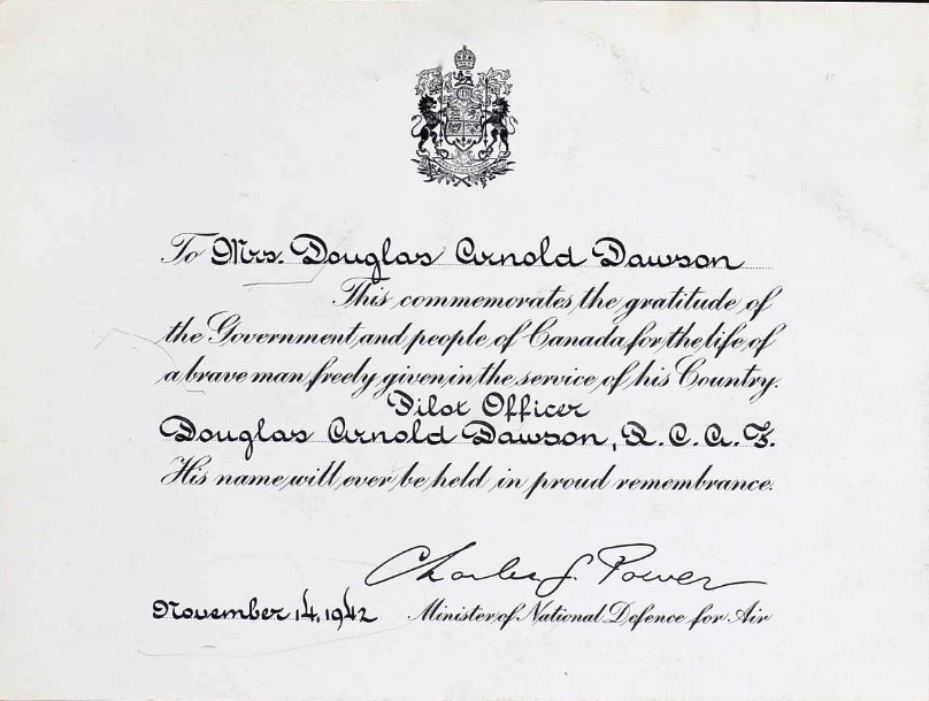 To Mrs. Douglas Arnold Dawson
This commemorates the gratitude of
the Government and people of Canada for the life of
a brave man freely given in the service of his Country.
Pilot Officer
Douglas Arnold Dawson, R.C.A.F.
His name will ever be held in proud remembrance.
Charles G. Power
November 14, 1942 Minister of National Defence for Air